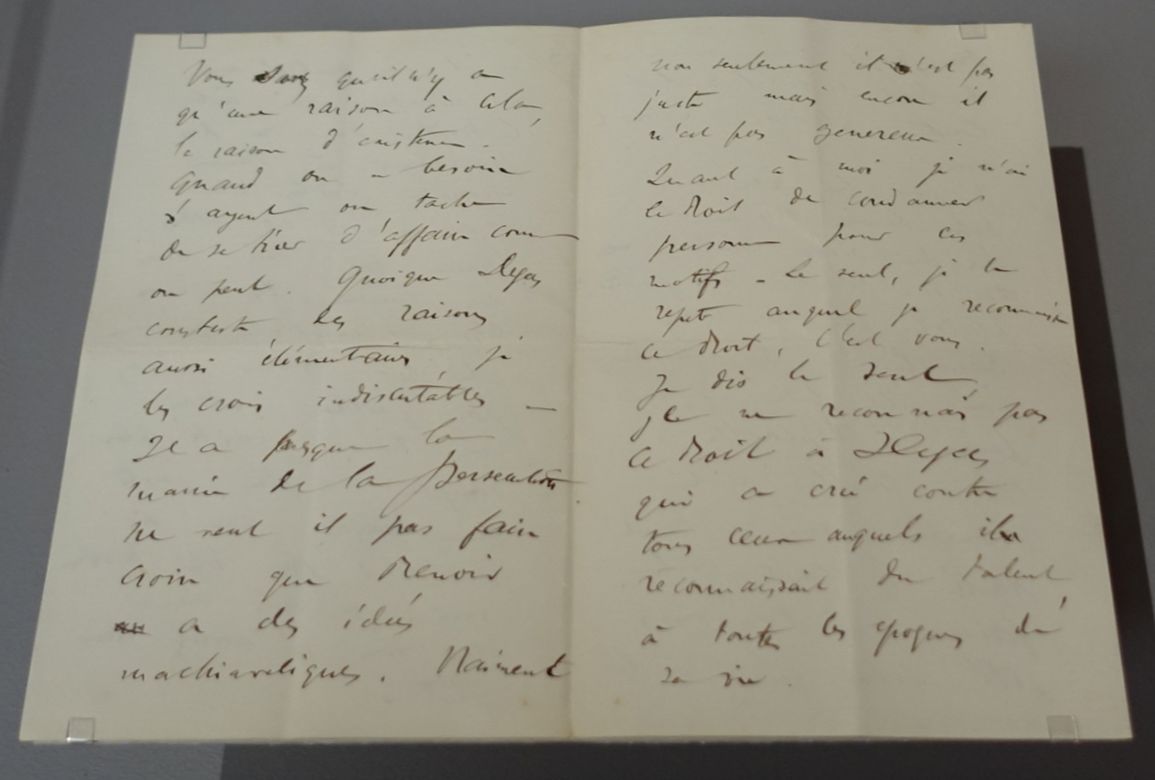 Vous savez qu'il n'y a
qu'une raison à cela,
la raison d'existence.
Quand on a besoin
d'argent on tache
de se tirer d'affaire comme
on peut. Quoique Degas
conteste des raisons
aussi élémentaires je
les crois indiscutables –
Il a presque la
manie de la persecution
ne veut il pas faire
croire que Renoir
a des idées
machiaveliques. Vraiment
non seulement il n'est pas
juste mais encore il
n'est pas genereux.
Quant à moi je n'ai
le droit de condamner
personne pour ces
motifs – Le seul, je le
repete auquel je reconnaisse
ce droit, c'est vous.
Je dis le seul,
je ne reconnais pas
ce droit à Degas
qui a crié contre
tous ceux auxquels il
reconnaissait du talent
à toutes les epoques de
sa vie.